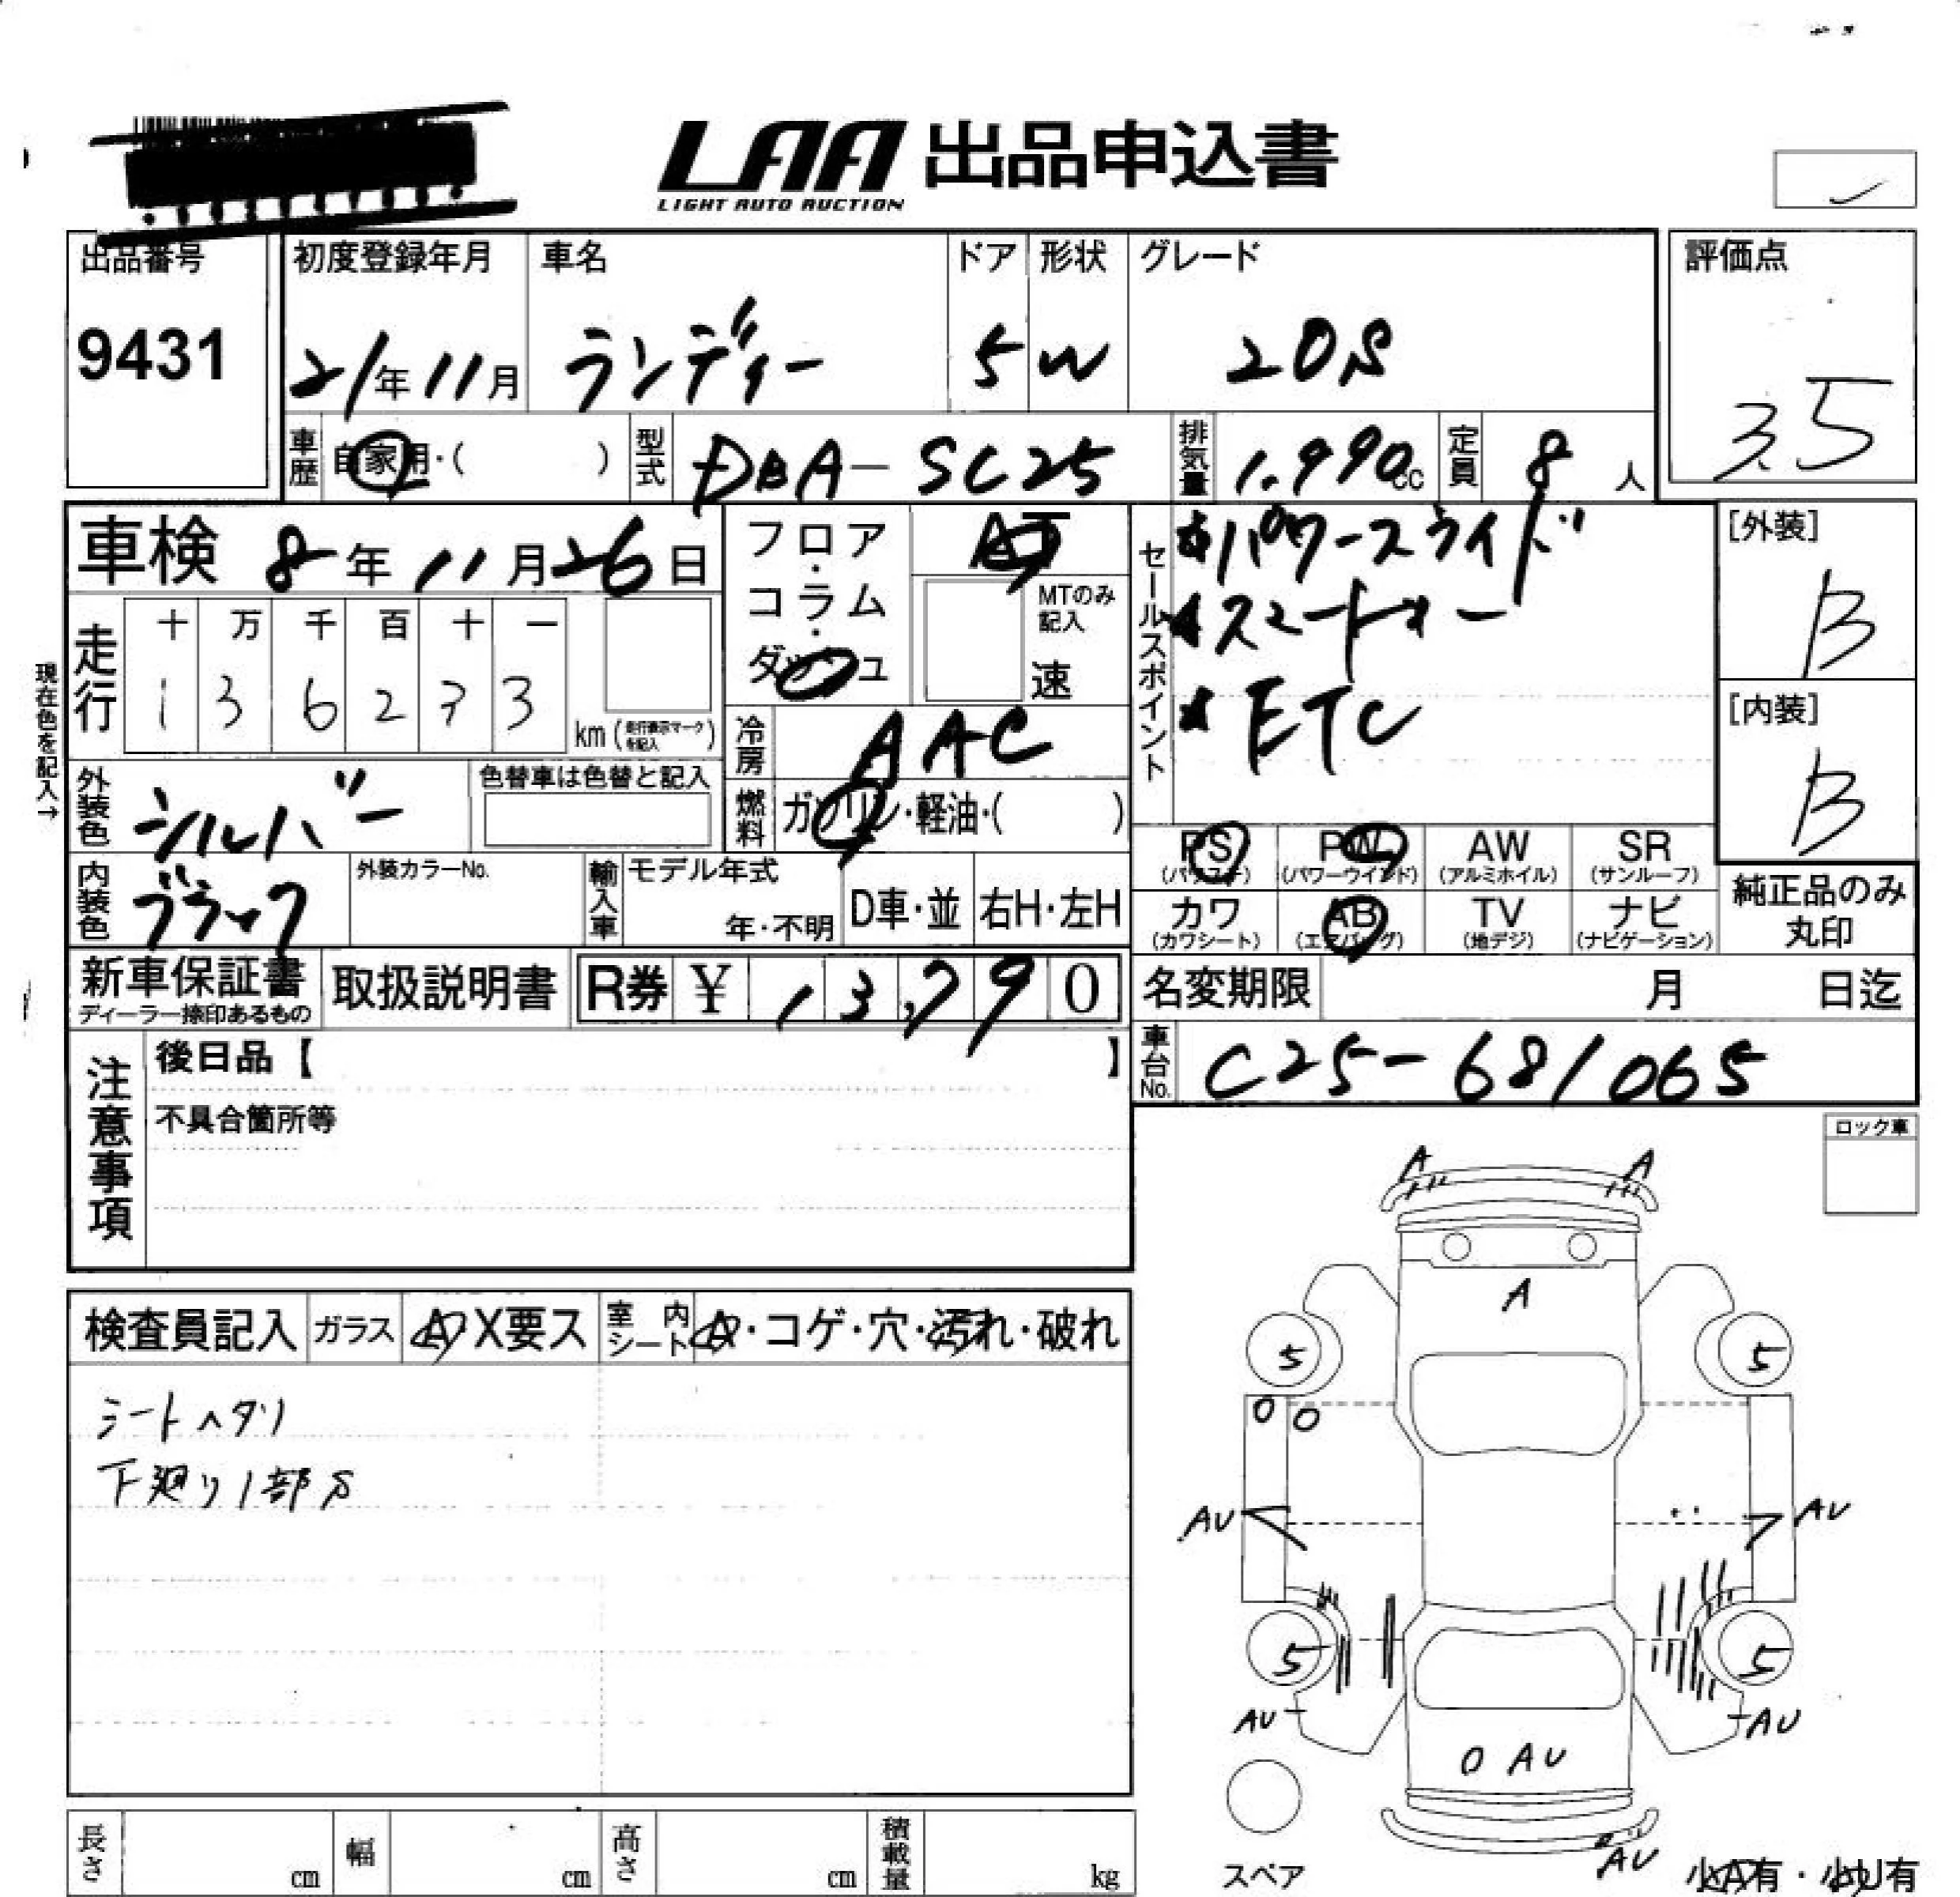 LAA 出品申込書
LIGHT AUTO AUCTION
出品番号
9431
初度登録年月
21年11月
車名
ランディー
ドア
5
形状
W
グレード
20S
評価点
3.5
車歴
自家用・( )
型式
DBA-SC25
排気量
1.990cc
定員
8人
車検 8年11月26日
フロア・コラム・ダッシュ
AT
MTのみ記入
速
セールスポイント
★パワースライド
★スマートキー
★ETC
[外装]
B
[内装]
B
現在色を記入→
走行
十 万 千 百 十 一
1 3 6 2 7 3
km (走行表示マークを記入)
冷房
AAC
外装色
シルバー
色替車は色替と記入
燃料
ガソリン・軽油・( )
内装色
ブラック
外装カラーNo.
輸入車
モデル年式
年・不明
D車・並
右H・左H
PS (パワステ)
PW (パワーウインド)
AW (アルミホイル)
SR (サンルーフ)
カワ (カワシート)
AB (エアバッグ)
TV (地デジ)
ナビ (ナビゲーション)
純正品のみ丸印
新車保証書
ディーラー捺印あるもの
取扱説明書
R券 ¥ 13,790
名変期限 月 日迄
車台No.
C25-681065
注意事項
後日品【 】
不具合箇所等
ロック車
検査員記入
ガラス
A X要ス
室内シート
A・コゲ・穴・汚れ・破れ
シートヘタリ
下廻り1部S
A A
A
5 5
O O
AU AU
5 5
AU AU
O AU
AU
スペア
小A有・小U有
長さ cm
幅 cm
高さ cm
積載量 kg